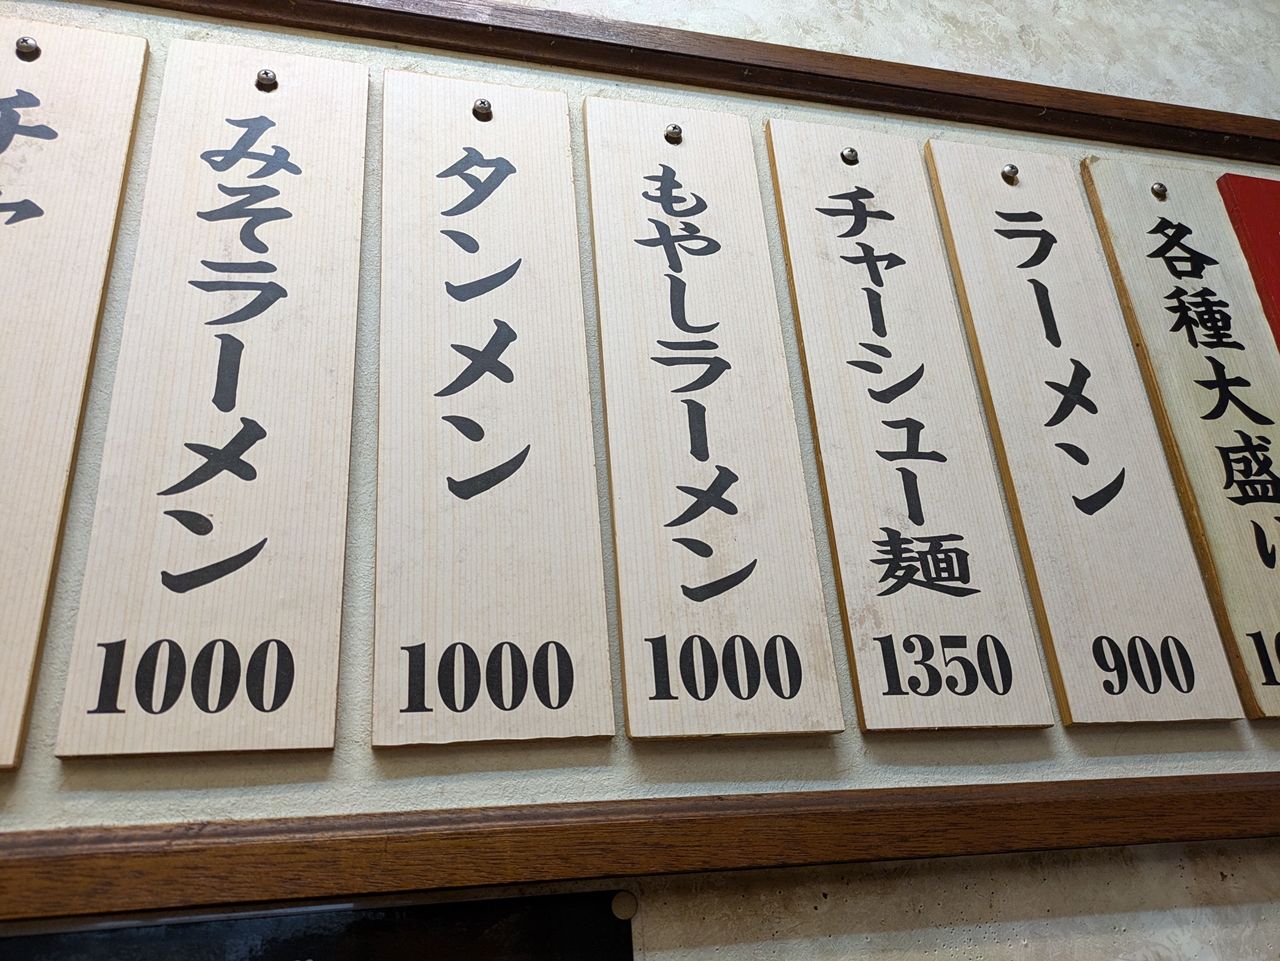 各種大盛り
ラーメン
900
チャーシュー麺
1350
もやしラーメン
1000
タンメン
1000
みそラーメン
1000
チャ